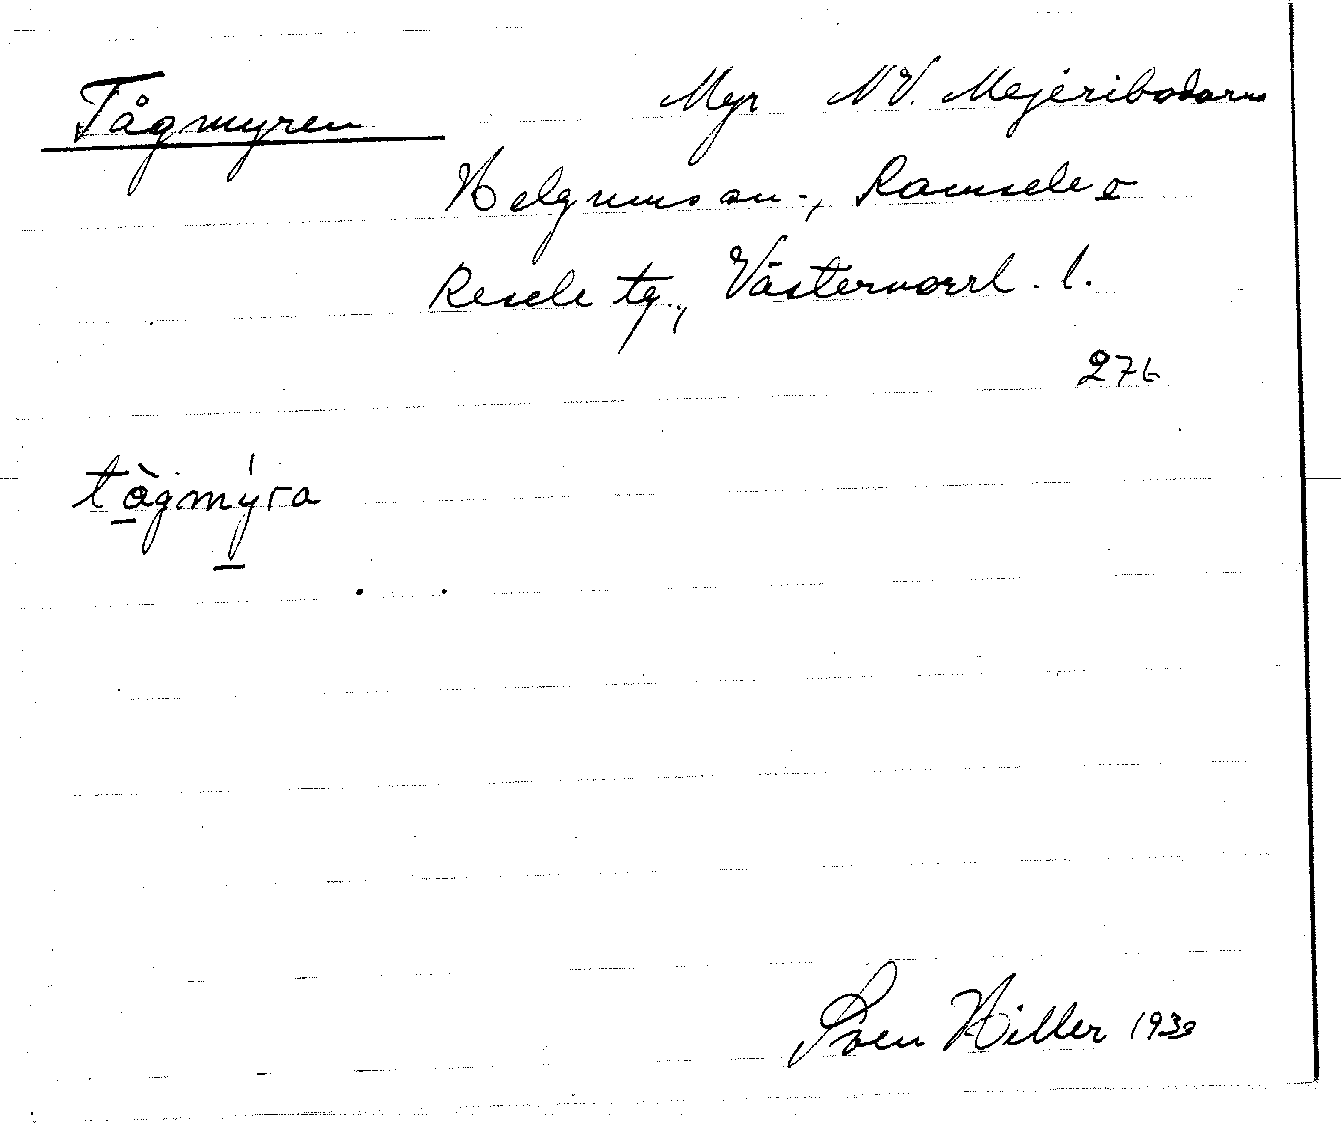 Tågmyren Myr NV. Mejeribodarna
Helgumsån., Ramsele o
Resele tg., Västernorrl. l.
276
tågmyra
Sven Hiller 1939